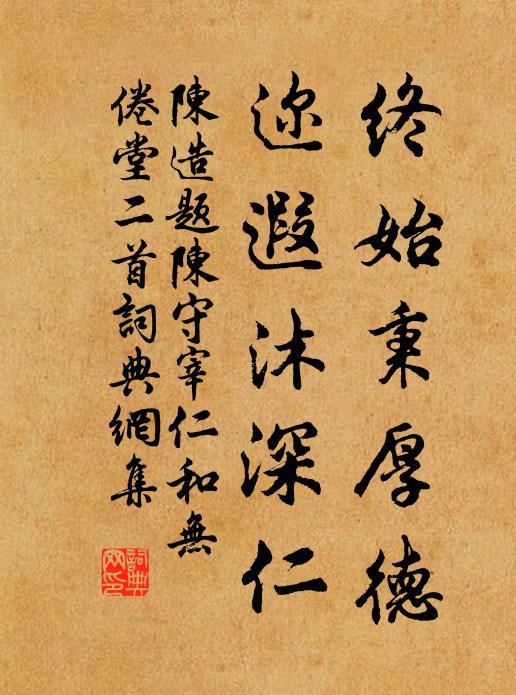 終始秉厚德
迩遐沐深仁
陳造題陳守宰仁和無
倦堂二首詞典網集
詞典
网印